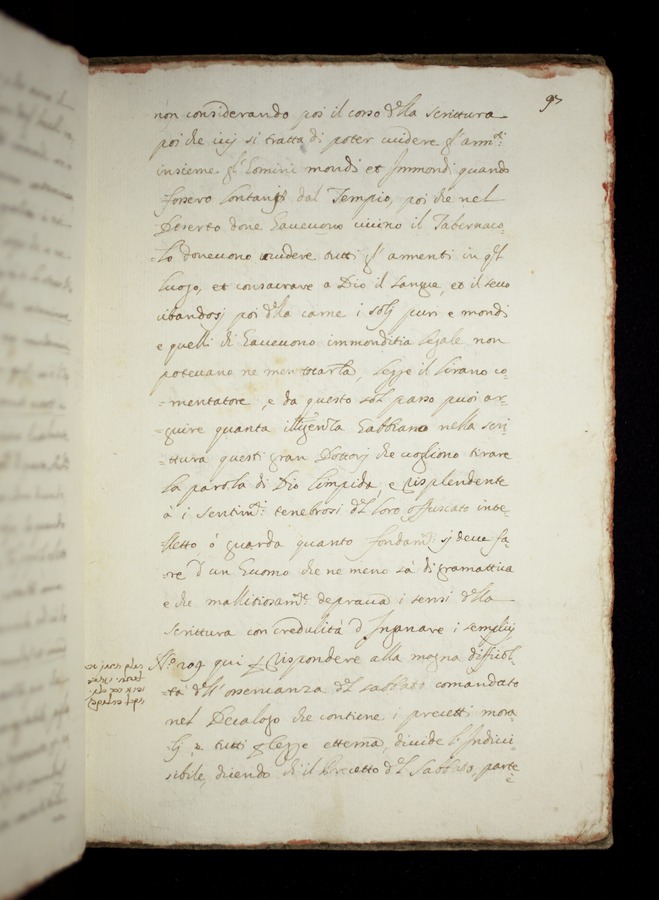 97
non considerando poi il corso d'lla scrittura
poi che ivi si tratta di poter uccidere gl'arm.ti
insieme gl'homini mondi et Immondi quando
fossero lontani dal Tempio, poi che nel
Deserto doue haueuono uicino il Tabernaco-
-lo doueuono uccidere tutti gl'armenti in q.l
luogo, et consacrare a Dio il sangue, et il seuo
cibandosi poi d'lla carne i solj puri e mondi
e quelli ch'haueuono immonditia legale non
poteuano ne men tocarla, legge il lirano co-
-mentatore, e da questo sol passo puoi ar-
-guire quanta habbiano nella scri-
-ttura questi gran Dottorj che uogliono tirare
la parola di Dio limpida, e risplendente
à i sentim.ti tenebrosi d'l loro offuscato inte-
-lletto, ò guarda quanto fondam.to sj deue fa-
-re d'un huomo che ne meno sà di gramattica
e che mallitiosam.te deprauà i sensi d'lla
scrittura con credulità d'Inganare i semplicj
N.o 109 qui p rispondere alla magna difficol-
-tà d'll'osseruanza d'l sabbato comandato
nel Decalogo che contiene i precetti mora-
-lj e tutti p legge etterna, diuide l'Indiui-
-sibile, dicendo ch'il Precetto d'l Sabbato, parte